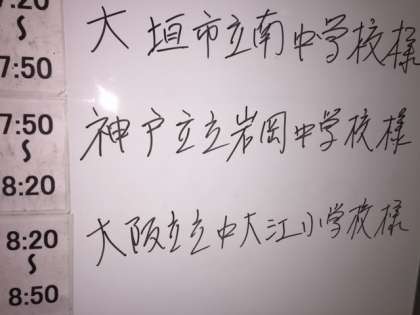 7:20
~
7:50
大垣市立南中学校様
7:50
~
8:20
神戸立立岩岡中学校様
8:20
~
8:50
大阪立立中大江小学校様